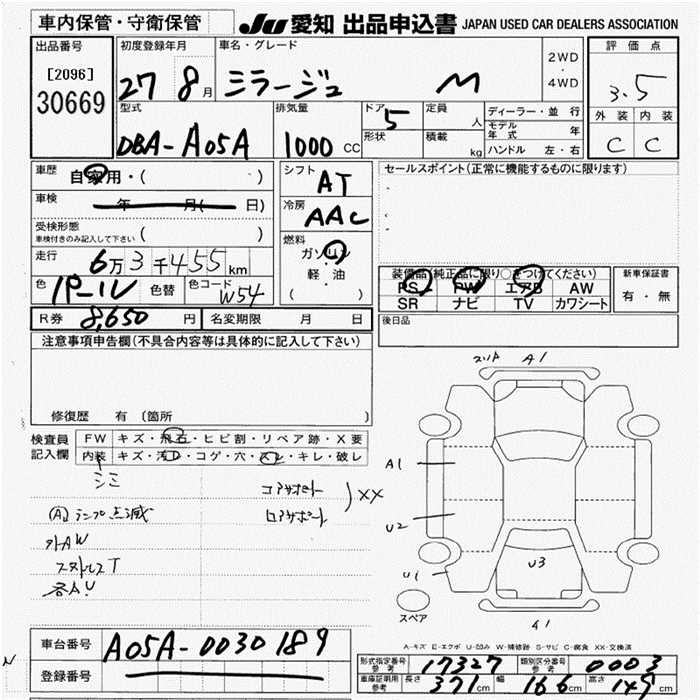 車内保管・守衛保管
JU 愛知 出品申込書 JAPAN USED CAR DEALERS ASSOCIATION
出品番号
[2096]
30669
初度登録年月
27 8月
車名・グレード
ミラージュ M
2WD
・
4WD
評価点
3.5
外装 内装
C C
型式
DBA-A05A
排気量
1000 CC
ドア 5
形状
定員 人
積載 kg
ディーラー・並行
モデル年式 年
ハンドル 左・右
車歴 自家用・( )
車検 年 月( 日)
受検形態
車検付きのみ記入して下さい ( )
走行 6万3千455km
色 パール 色替 色コード W54
シフト AT
冷房 AAC
燃料
ガソリン
軽・油
( )
セールスポイント(正常に機能するものに限ります)
装備品(純正品に限り○をつけてください)
PS PW エアB AW
SR ナビ TV カワシート
新車保証書
有・無
R券 8,650円 名変期限 月 日
後日品
注意事項申告欄(不具合内容等は具体的に記入して下さい)
修復歴 有(箇所
検査員
記入欄
FW キズ・飛石・ヒビ割・リペア跡・X要
内装 キズ・汚レ・コゲ・穴・スレ・キレ・破レ
シミ
コアサポート
ロアサポート
)XX
ランプ点滅
外AW
スタッドレスT
各A.U
A1
A1
U2
U1
U3
A1
スペア
A-キズ E-エクボ U-凹み W-補修跡 S-サビ C-腐食 XX-交換済
車台番号 A05A-0030189
登録番号
形式指定番号 参考 17327
類別区分番号 参考 0003
車庫証明用 参考 長さ 371cm 幅 166cm 高さ 149cm
N